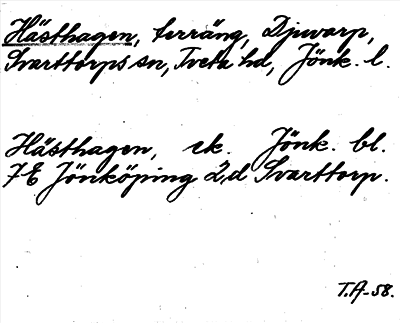 Hästhagen, terräng, Djuvarp,
Svarttorps sn, Tveta hd, Jönk. l.
Hästhagen, ek. Jönk. bl.
7E Jönköping 2d Svarttorp.
T.A-58.